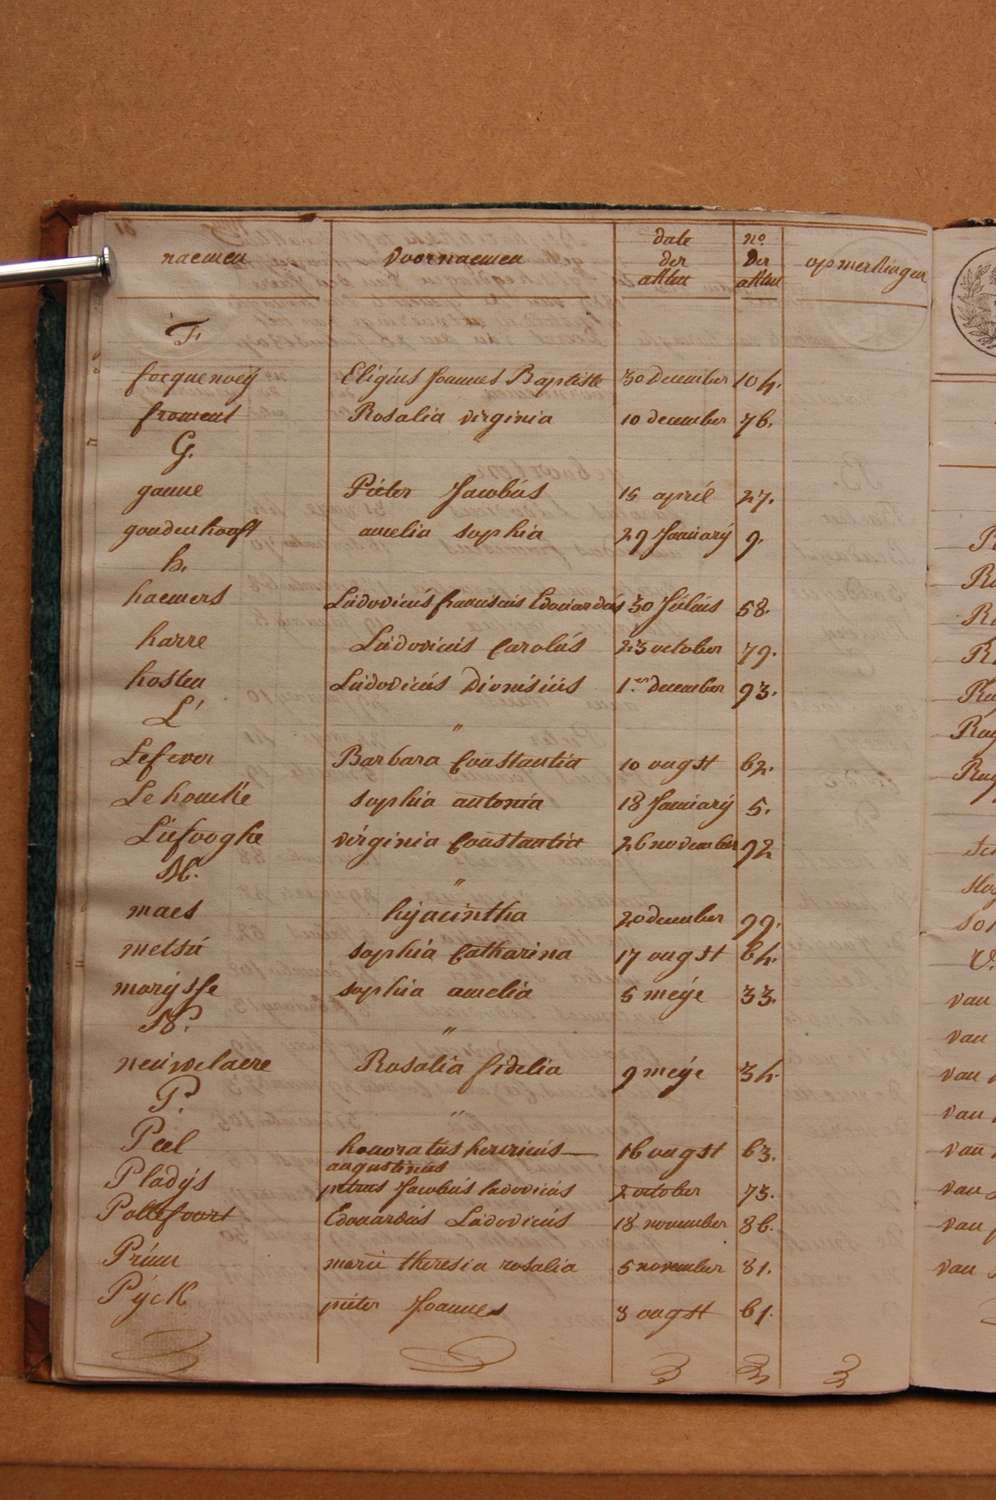 naemen voornaemen date der akten no der akten opmerkingen
F.
focquenoeÿ Eligius Joannes Baptiste 30 December 104.
froment Rosalia virginia 10 december 76.
G.
ganne Pieter Jacobús 15 april 27.
goudenhooft amelia sophia 29 Januarÿ 9.
h.
haemers Lúdovicús franciscús Edouardús 30 Július 58.
harre Lúdovicús Carolús 23 october 79.
hosten Lúdovicús Dionisiús 1.er december 93.
L.
"
Lefever Barbara Constantia 10 ougst 62.
Le houcke sophia antonia 18 Januarÿ 5.
Liefooghe virginia Constantia 26 november 92
M.
"
maes hÿacintha 20 december 99.
metsú sophia Catharina 17 ougst 64.
marÿsse sophia amelia 5 meÿe 33.
N.
"
neúvelaere Rosalia fidelia 9 meÿe 34.
P.
"
Peel honoratús 16 ougst 63.
augustinús
Pladÿs petrus Jacobús ludovicús 2 october 73.
Pollefoort Edouardús Lúdovicús 18 november 86.
Prúm marie theresia rosalia 5 november 81.
Pÿck pieter Joannes 3 ougst 61.
van
van
van
van
van
van
van
van